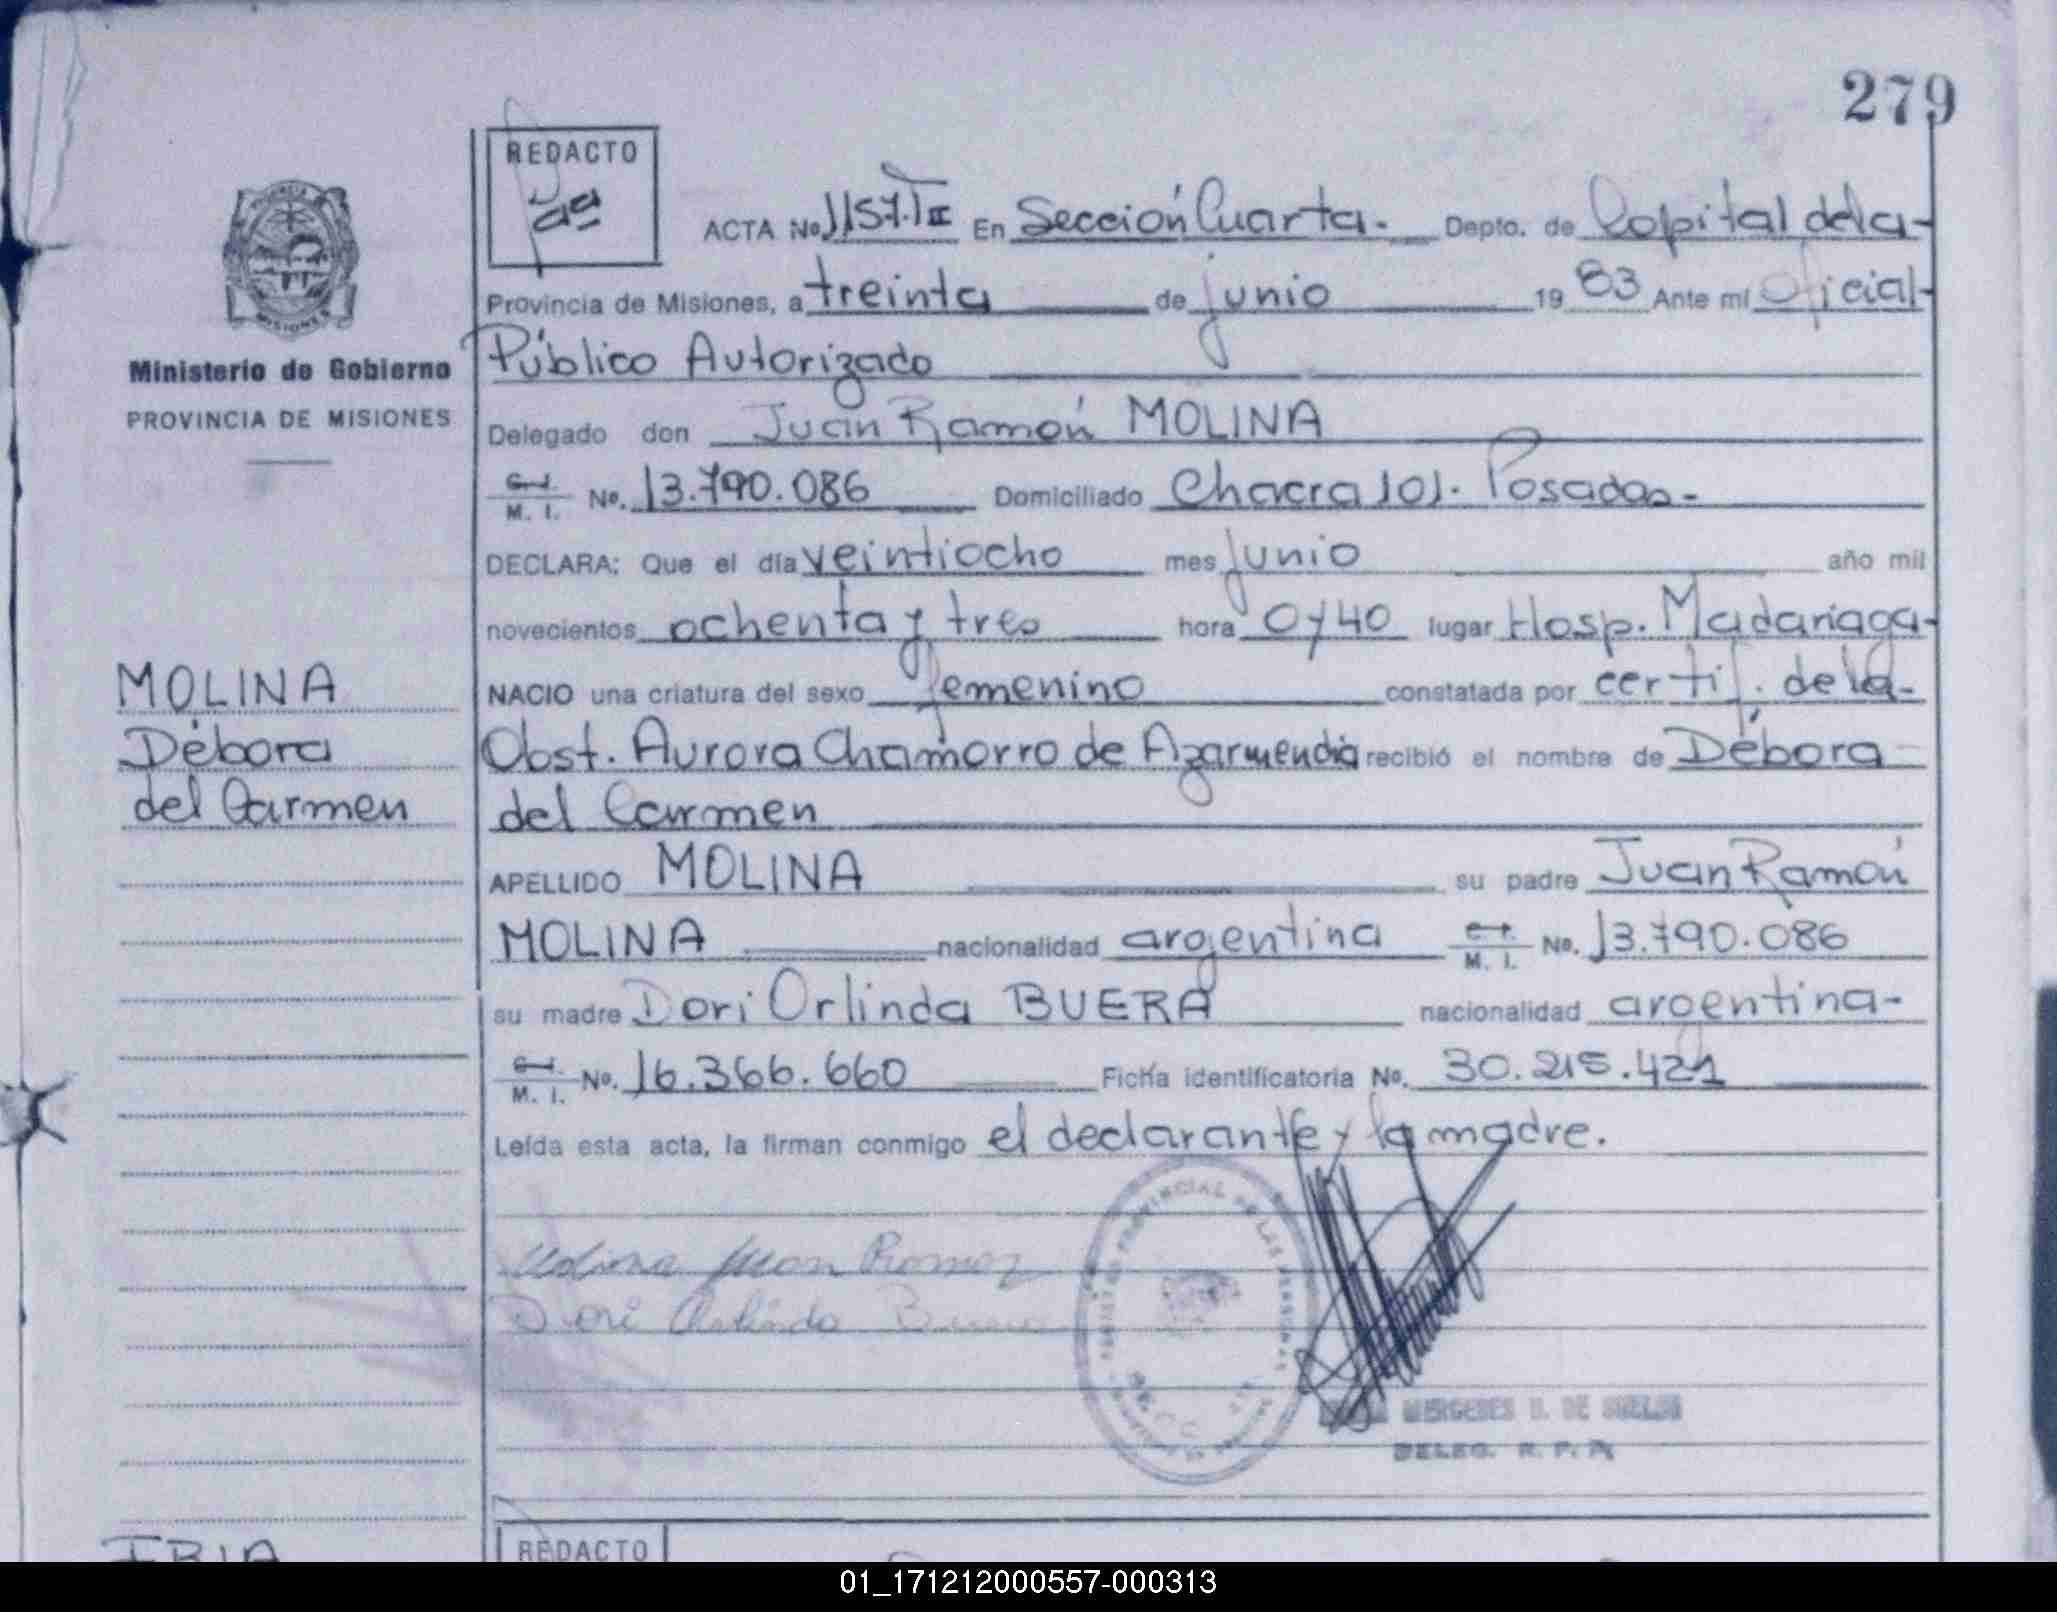 279
REDACTO
ACTA No 1157.TII En Sección Cuarta. Depto. de Capital de la
Provincia de Misiones, a treinta de junio 19 83 Ante mí Oficial
Público Autorizado
Ministerio de Gobierno
PROVINCIA DE MISIONES
Delegado don Juan Ramón MOLINA
M. I. No. 13.790.086 Domiciliado Chacra 101. Posadas-
DECLARA: Que el día veintiocho mes junio año mil
novecientos ochenta y tres hora 0y40 lugar Hosp. Madariaga-
NACIO una criatura del sexo femenino constatada por certif. de la-
Obst. Aurora Chamorro de Azarmendia recibió el nombre de Débora
del Carmen
MOLINA
Débora
del Carmen
APELLIDO MOLINA su padre Juan Ramón
MOLINA nacionalidad argentina M. I. No. 13.790.086
su madre Dori Orlinda BUERA nacionalidad argentina-
M. I. No. 16.366.660 Ficha identificatoria No. 30.215.421
Leída esta acta, la firman conmigo el declarante y la madre.
Molina Juan Ramon
Dori Orlinda Buera
MERCEDES
DELEG. R. P. P.
REDACTO
01_171212000557-000313